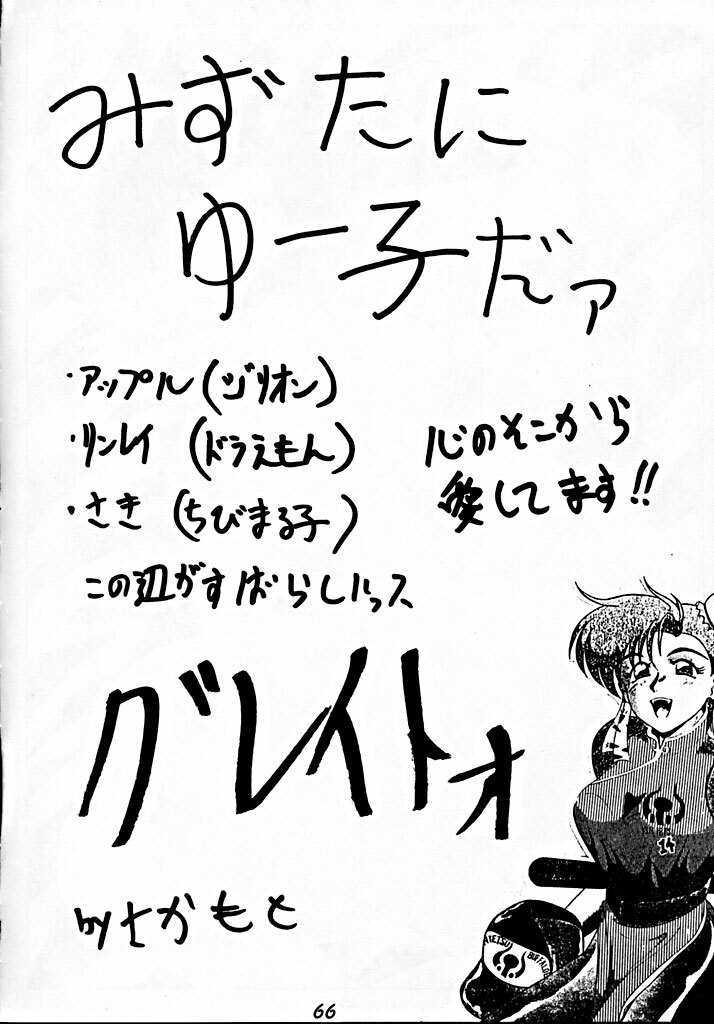 みずたに
ゆー子だァ
・アップル(ヅリオン)
・リンレイ (ドラえもん)
・さき (ちびまる子)
この辺がすばらしいっス
心のそこから
愛してます!!
グレイトォ
by さかもと
14
66